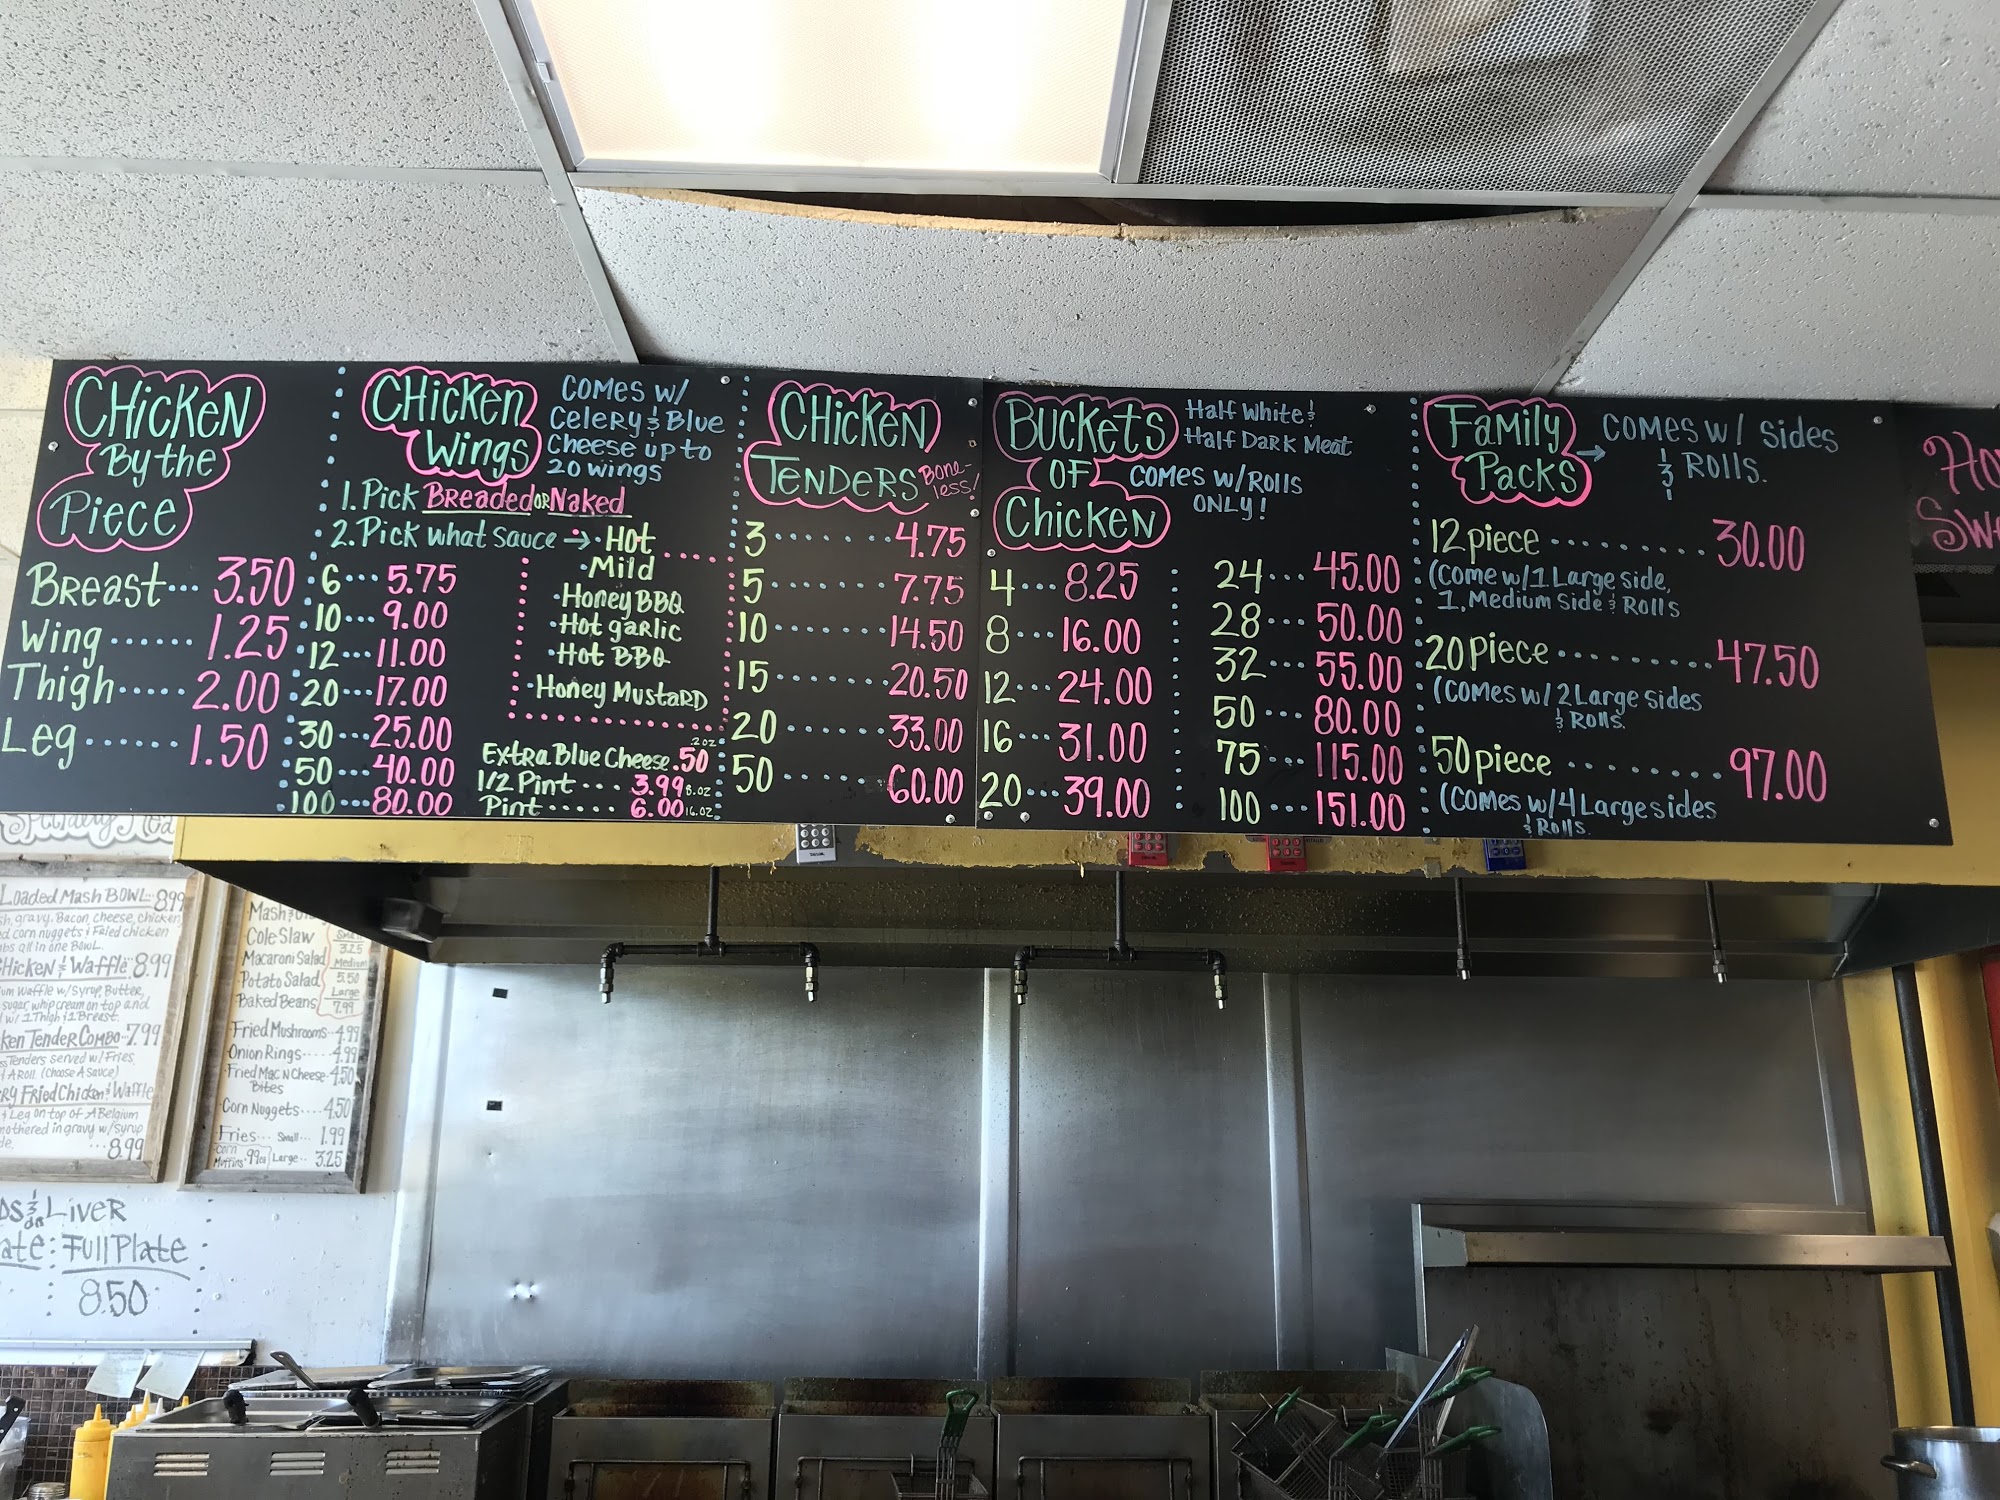 CHicKeN
By the
Piece
Breast... 3.50
Wing...... 1.25
Thigh..... 2.00
Leg...... 1.50
CHicKen
Wings
COMES W/
Celery & Blue
Cheese up to
20 wings
1. Pick Breaded OR Naked
2. Pick what sauce → • Hot
• Mild
• Honey BBQ
• Hot garlic
• Hot BBQ
• Honey MustaRD
6... 5.75
10... 9.00
12... 11.00
20... 17.00
30... 25.00
50... 40.00
100... 80.00
2oz
Extra Blue Cheese .50
1/2 Pint... 3.99 8.oz
Pint..... 6.00 16.oz.
CHicKeN
TeNDeRS
Bone-
less!
3....... 4.75
5....... 7.75
10....... 14.50
15....... 20.50
20....... 33.00
50..... 60.00
Buckets
OF
Chicken
Half white &
Half Dark Meat
COMES W/ROllS
ONLY!
4... 8.25
8... 16.00
12... 24.00
16... 31.00
20... 39.00
24... 45.00
28... 50.00
32... 55.00
50... 80.00
75... 115.00
100... 151.00
Family
Packs →
COMES W/ Sides
& ROlls.
12 piece......... 30.00
(Come w/ 1 Large side,
1, Medium Side & Rolls
20 piece......... 47.50
(COMES w/ 2 Large sides
& Rolls.
50 piece........ 97.00
(COMES w/ 4 Large sides
& Rolls.
Loaded Mash BOWL.. 8.99
gravy. Bacon, cheese, chicken
corn nuggets & Fried chicken
all in one BOWL.
HicKeN & Waffle 8.99
Waffle w/ Syrup, Butter,
sugar, whip cream on top and
w/ 1 Thigh & 1 Breast.
TendeR COMBO 7.99
Tenders served w/ Fries
& A Roll (Choose A Sauce)
Fried Chicken & Waffle
& Leg on top of A Belgium
in gravy w/ syrup
... 8.99
Mash &
Cole Slaw
Macaroni Salad
Potato Salad
Baked Beans
Small
3.25
Medium
5.50
Large
7.99
• Fried Mushrooms.. 4.99
• Onion Rings.... 4.99
• Fried Mac N Cheese. 4.50
Bites
• Corn Nuggets.... 4.50
• Fries... Small... 1.99
Corn
Muffins .99ea
Large.. 3.25
& LiveR
Full Plate
8.50